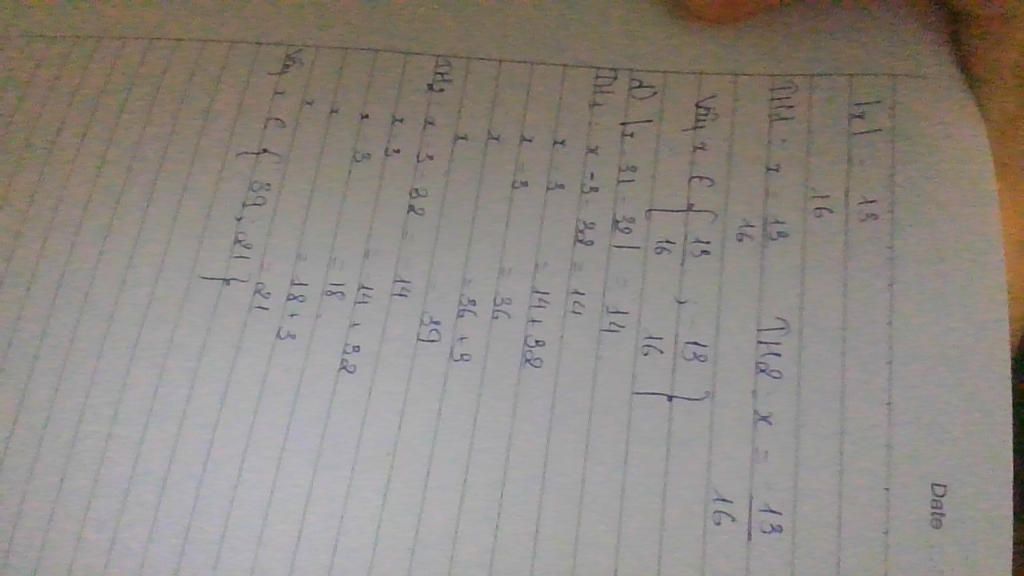 Date
|x| = 13
16
TH1: x = 13 TH2 x = - 13
16 16
Vậy x ∈ { 13 ; - 13 }
16 16
d) |x - 3| - 22| = 14
TH1 x - 3 - 22 = 14
x 3 = 14 + 22
x - 3 = 36
x = 36 + 3
x 39
TH2 x 3 - 22 = - 14
x 3 = - 14 + 32
x 3 = 18
x = 18 + 3
x = 21
Vậy x ∈ { 39, 21 }